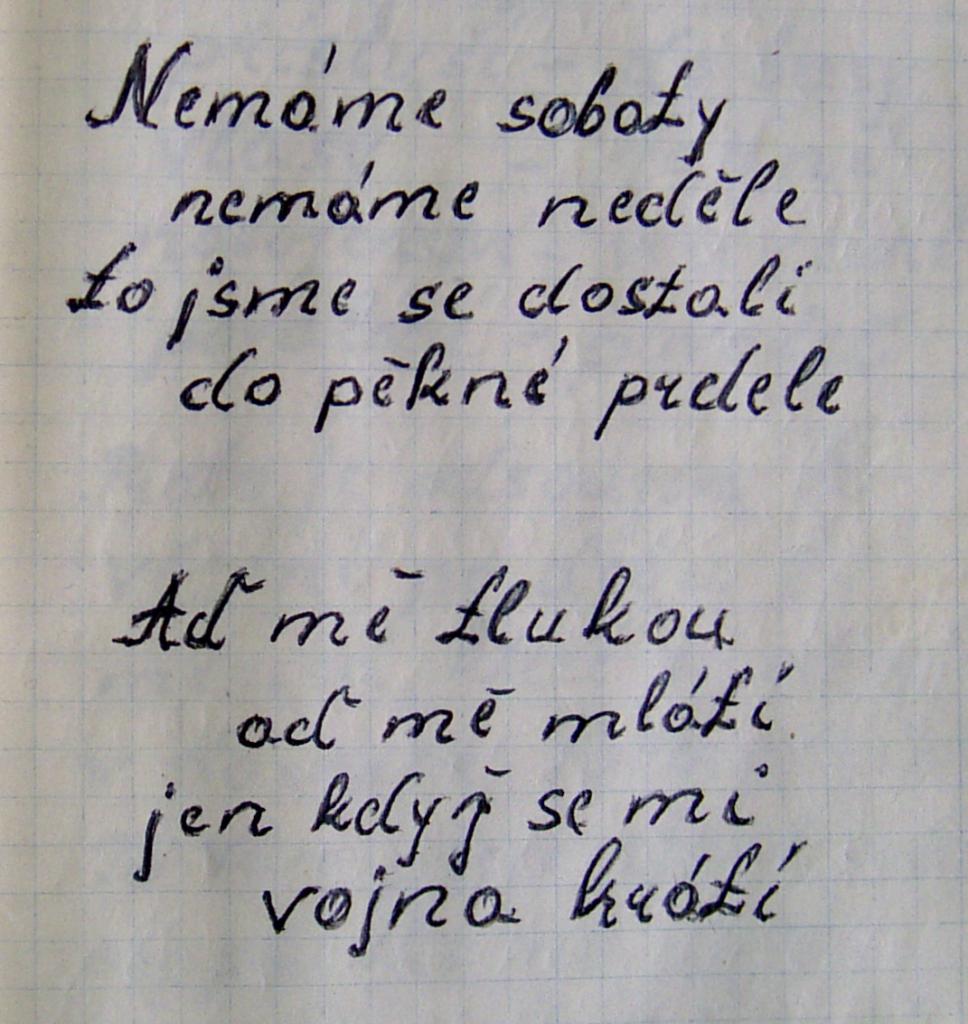 Nemáme soboty
nemáme neděle
to jsme se dostali
do pěkné prdele
Ať mě tlukou
ať mě mlátí
jen když se mi
vojna krátí